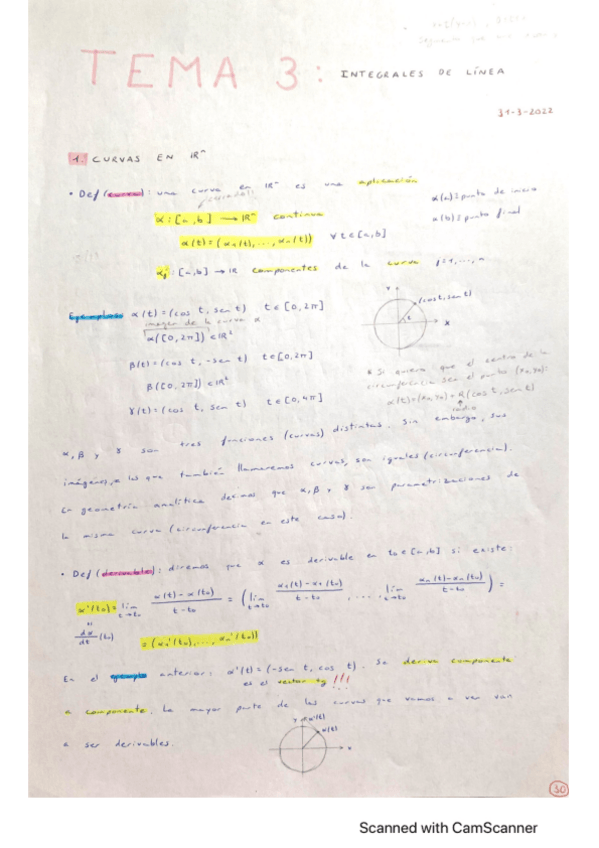 TEMA 3: INTEGRALES DE LÍNEA
31-3-2022
1. CURVAS EN ℝⁿ
• Def (curva): una curva en ℝⁿ es una aplicación
α: [a,b] → ℝⁿ continua
α(a) ≡ punto de inicio
α(b) ≡ punto final
α(t) = (α₁(t), ..., αₙ(t)) ∀t∈[a,b]
αⱼ: [a,b] → ℝ componentes de la curva j=1,...,n
Ejemplos: α(t) = (cos t, sen t) t∈[0,2π]
imagen de la curva α
α([0,2π]) ⊂ ℝ²
β(t) = (cos t, -sen t) t∈[0,2π]
β([0,2π]) ⊂ ℝ²
γ(t) = (cos t, sen t) t∈[0,4π]
Y
(cos t, sen t)
t
X
* Si quiero que el centro de la
circunferencia sea el punto (x₀,y₀):
α(t) = (x₀,y₀) + R(cos t, sen t)
radio
α, β y γ son tres funciones (curvas) distintas. Sin embargo, sus
imágenes, a las que también llamaremos curvas, son iguales (circunferencia).
En geometría analítica decimos que α, β y γ son parametrizaciones de
la misma curva (circunferencia en este caso).
• Def (derivable): diremos que α es derivable en t₀∈[a,b] si existe:
α'(t₀) = lim t→t₀ (α(t)-α(t₀))/(t-t₀) = (lim t→t₀ (α₁(t)-α₁(t₀))/(t-t₀), ..., lim t→t₀ (αₙ(t)-αₙ(t₀))/(t-t₀)) =
dα/dt (t₀)
= (α₁'(t₀), ..., αₙ'(t₀))
En el ejemplo anterior: α'(t) = (-sen t, cos t). Se deriva componente
es el vector tg!!!
a componente. La mayor parte de las curvas que vamos a ver van
a ser derivables.
Y
α'(t)
α(t)
X
30
Scanned with CamScanner